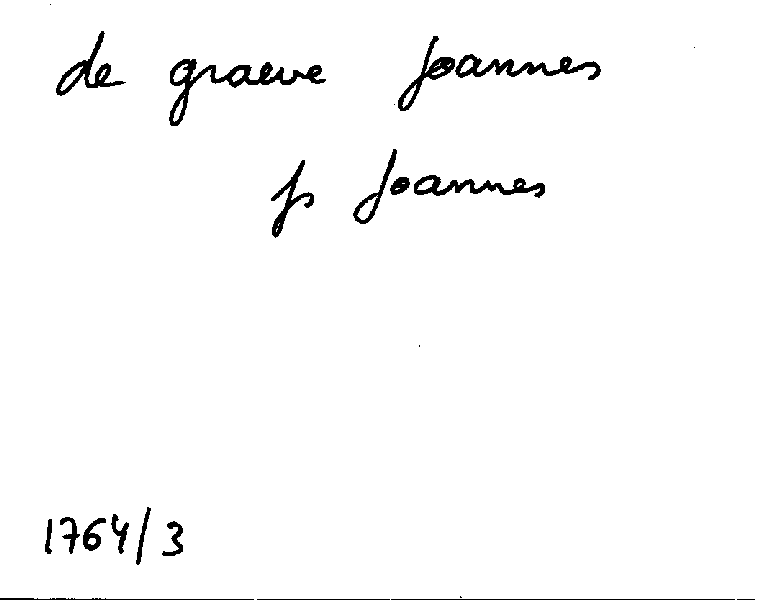 de graeve Joannes
fs Joannes
1764/3